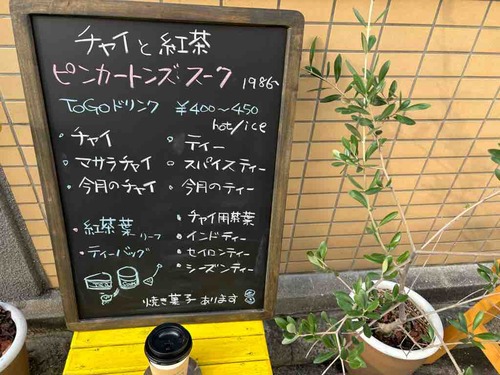 チャイと紅茶
ピンカートンズ・スーク 1986~
ToGoドリンク ¥400~450
hot/ice
・チャイ ・ティー
・マサラチャイ ・スパイスティー
・今月のチャイ ・今月のティー
・紅茶葉 リーフ ・チャイ用茶葉
・ティーバッグ ・インドティー
・セイロンティー
・シーズンティー
焼き菓子あります